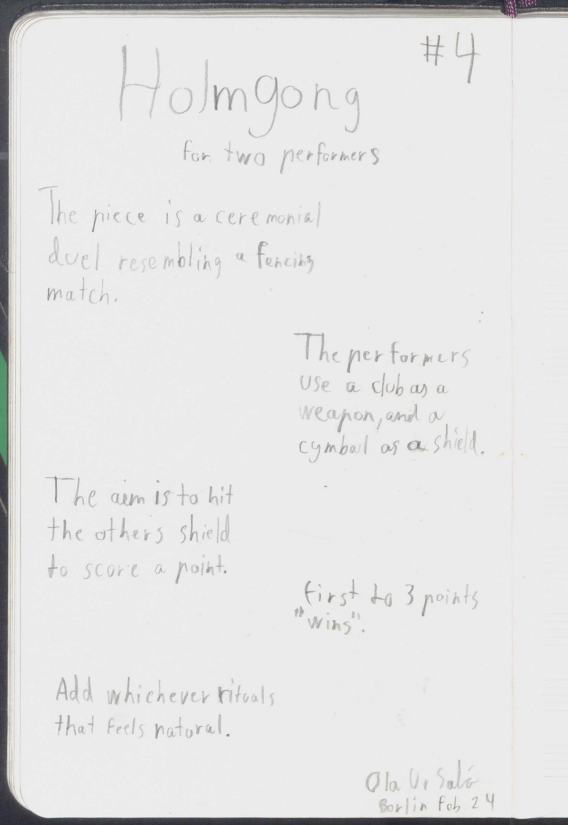 #4
Holmgong
for two performers
The piece is a ceremonial
duel resembling a fencing
match.
The performers
use a club as a
weapon, and a
cymbal as a shield.
The aim is to hit
the others shield
to score a point.
First to 3 points
"wins".
Add whichever rituals
that feels natural.
Ola
Berlin Feb 24